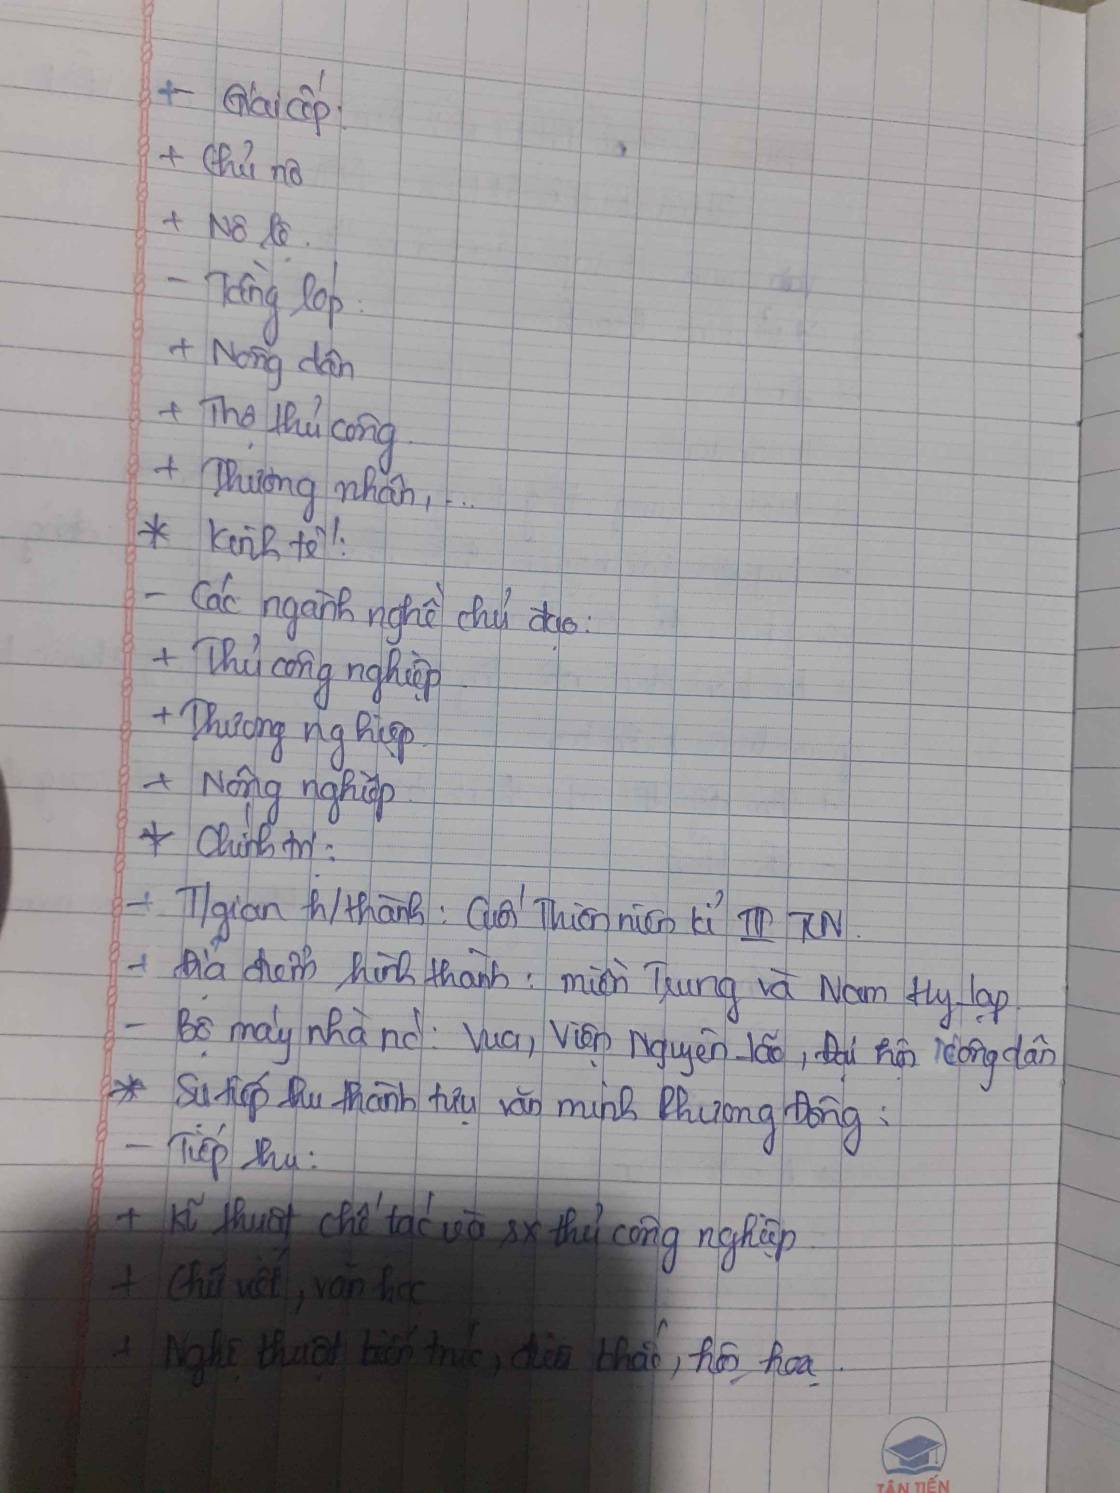 + Giai cấp:
+ Chủ nô
+ Nô lệ.
- Tầng lớp:
+ Nông dân
+ Thợ thủ công
+ Thương nhân, ...
* Kinh tế:
- Các ngành nghề chủ đạo:
+ Thủ công nghiệp
+ Thương nghiệp
+ Nông nghiệp
* Chính trị:
+ T/gian h/thành: Cuối Thiên niên kỉ III TCN.
+ Địa điểm hình thành: miền Trung và Nam Hy Lạp
- Bộ máy nhà nc: Vua, Viện Nguyên lão, Đại hội công dân
* Sự tiếp thu thành tựu văn minh Phương Đông:
- Tiếp thu:
+ Kĩ thuật chế tác và sx thủ công nghiệp
+ Chữ viết, văn học
+ Nghệ thuật kiến trúc, điêu khắc, hội hoạ.
TÂN TIẾN